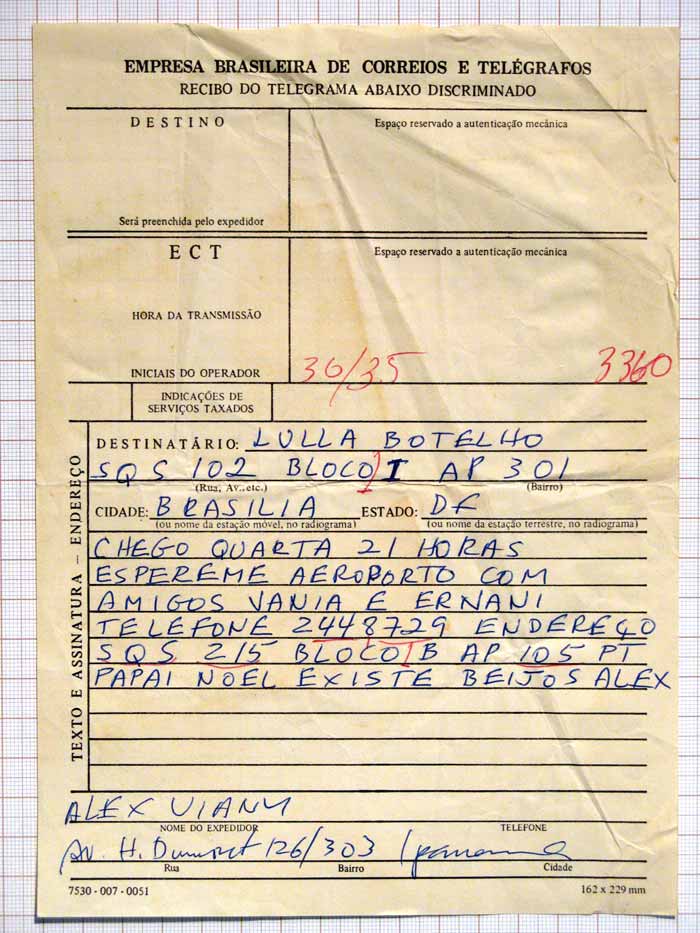 EMPRESA BRASILEIRA DE CORREIOS E TELÉGRAFOS
RECIBO DO TELEGRAMA ABAIXO DISCRIMINADO
DESTINO
Espaço reservado a autenticação mecânica
Será preenchida pelo expedidor
ECT
Espaço reservado a autenticação mecânica
HORA DA TRANSMISSÃO
INICIAIS DO OPERADOR
36/35 3360
INDICAÇÕES DE
SERVIÇOS TAXADOS
TEXTO E ASSINATURA — ENDEREÇO
DESTINATÁRIO: LULLA BOTELHO
SQS 102 BLOCO I AP 301
(Rua, Av., etc.) (Bairro)
CIDADE: BRASILIA ESTADO: DF
(ou nome da estação móvel, no radiograma) (ou nome da estação terrestre, no radiograma)
CHEGO QUARTA 21 HORAS
ESPEREME AEROPORTO COM
AMIGOS VANIA E ERNANI
TELEFONE 2448729 ENDEREÇO
SQS 215 BLOCO B AP 105 PT
PAPAI NOEL EXISTE BEIJOS ALEX
ALEX VIANY
NOME DO EXPEDIDOR TELEFONE
Av. H. Dumont 126/303 Ipanema
Rua Bairro Cidade
7530 - 007 - 0051 162 x 229 mm